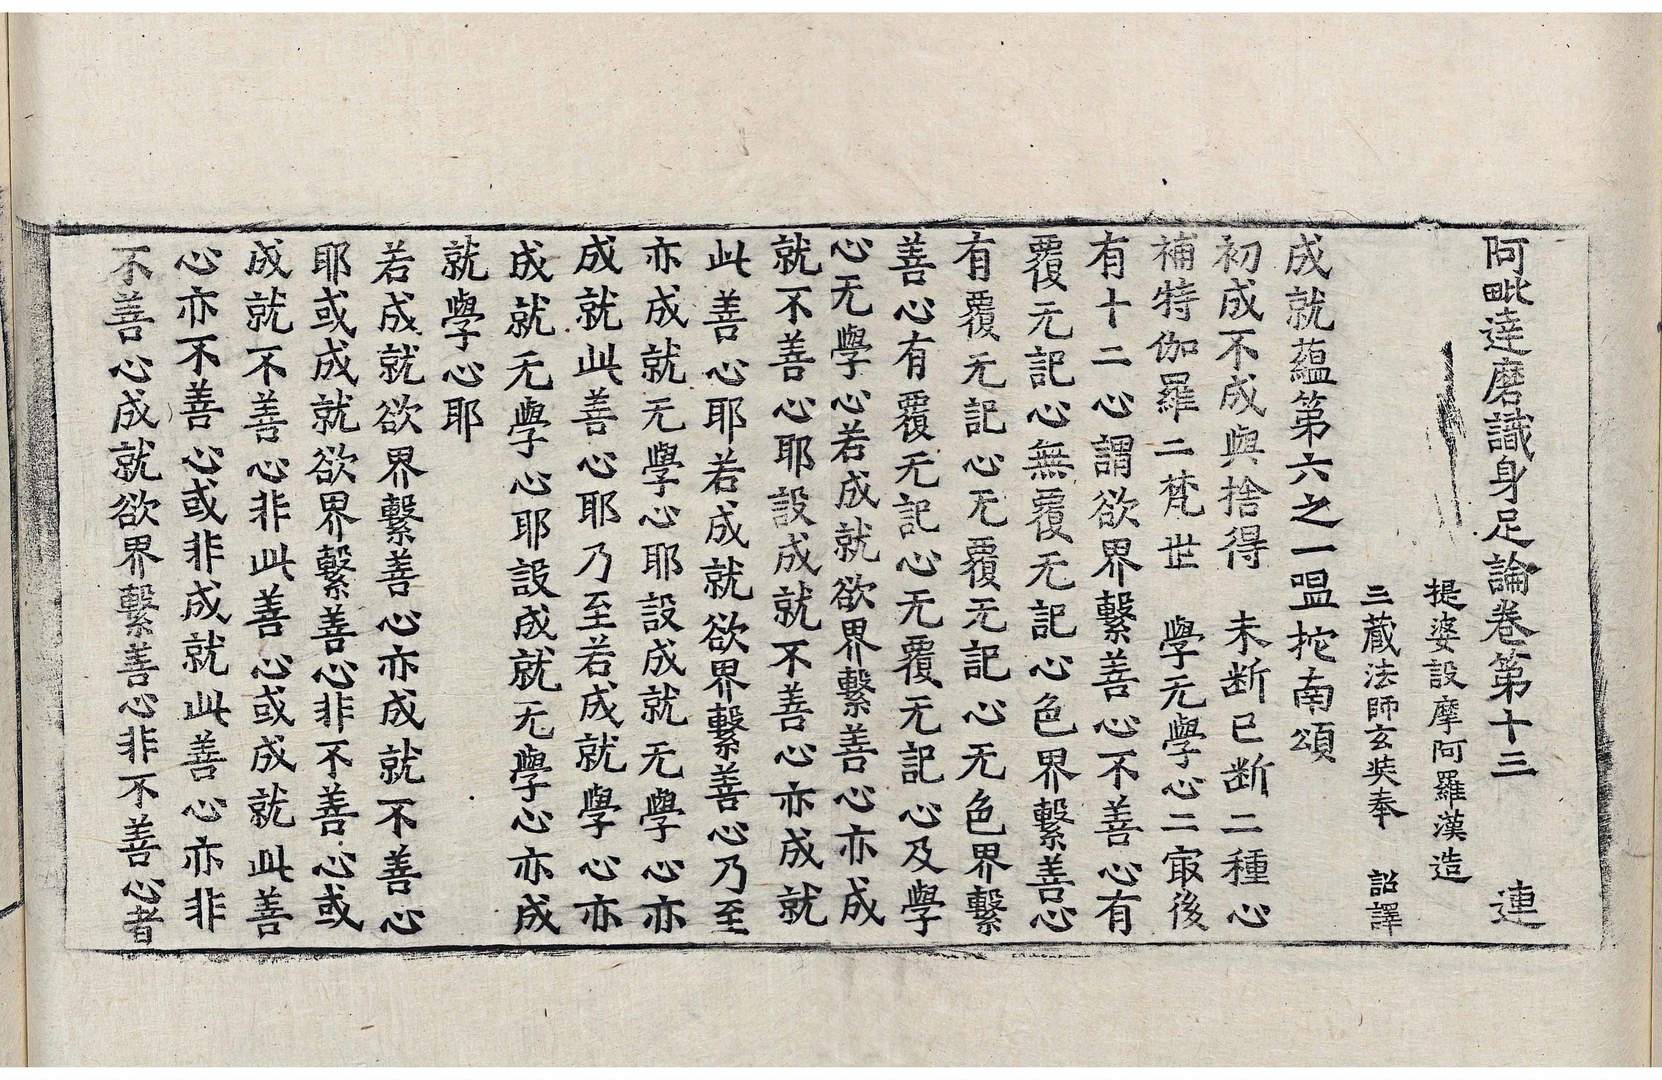 阿毗達磨識身足論卷第十三 連
提婆設摩阿羅漢造
三藏法師玄奘奉 詔譯
成就蘊第六之一嗢拕南頌
初成不成與捨得 未斷已斷二種心
補特伽羅二梵世 學无學心二㝡後
有十二心謂欲界繫善心不善心有
覆无記心無覆无記心色界繫善心
有覆无記心无覆无記心无色界繫
善心有覆无記心无覆无記心及學
心无學心若成就欲界繫善心亦成
就不善心耶設成就不善心亦成就
此善心耶若成就欲界繫善心乃至
亦成就无學心耶設成就无學心亦
成就此善心耶乃至若成就學心亦
成就无學心耶設成就无學心亦成
就學心耶
若成就欲界繫善心亦成就不善心
耶或成就欲界繫善心非不善心或
成就不善心非此善心或成就此善
心亦不善心或非成就此善心亦非
不善心成就欲界繫善心非不善心者